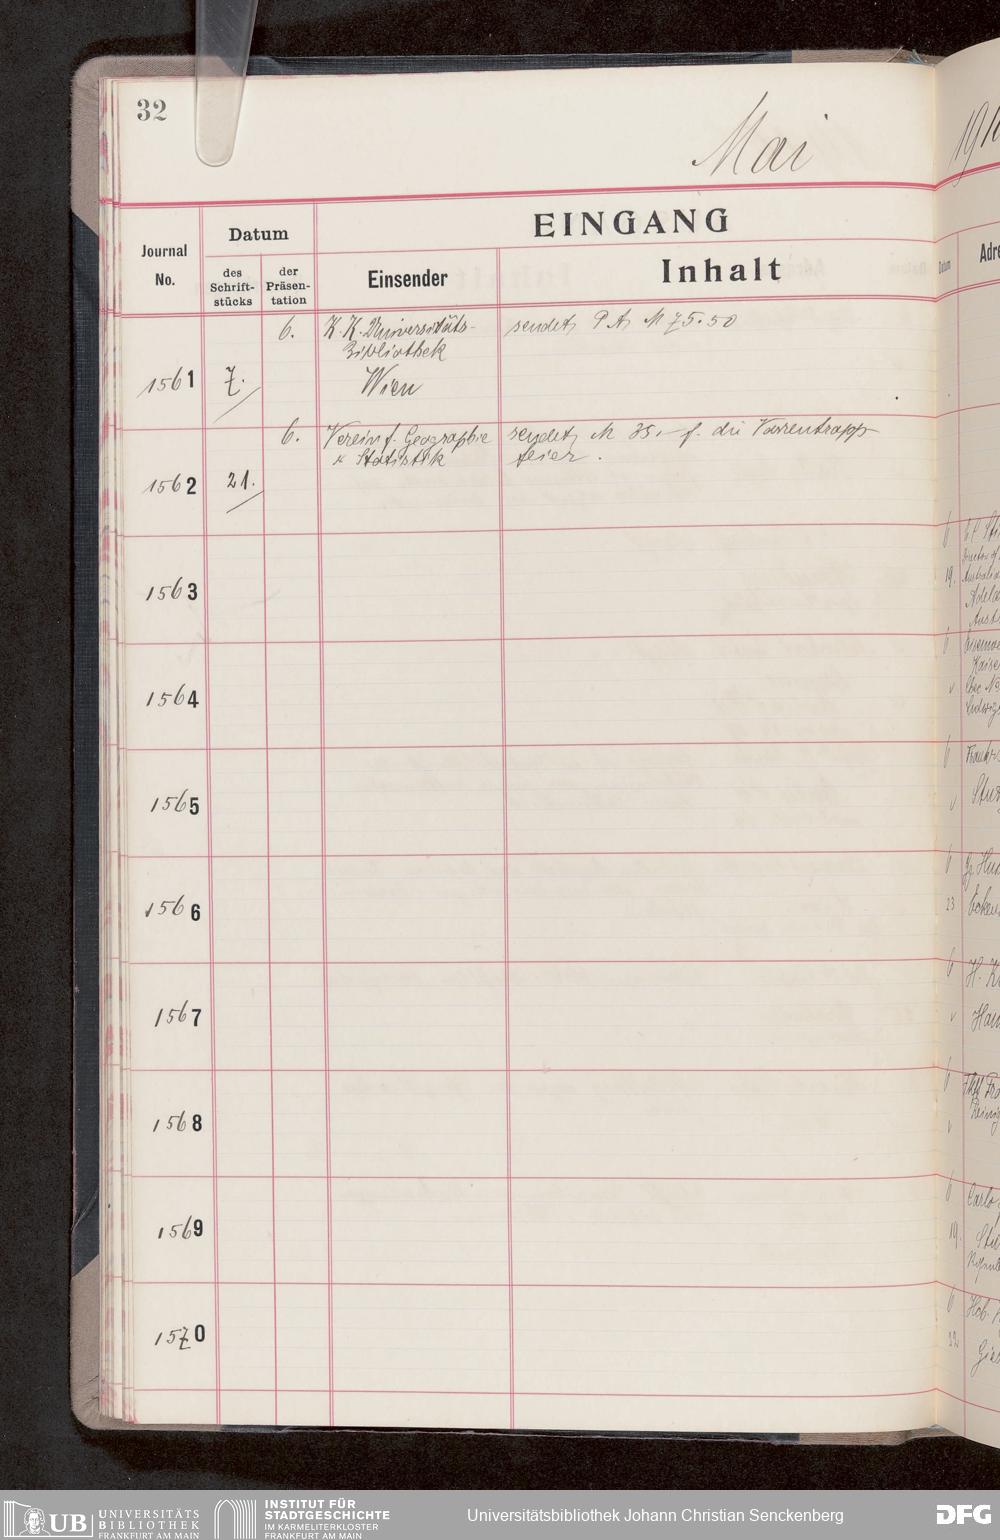 32
Mai
EINGANG
Journal
No.
Datum
des
Schrift-
stücks
der
Präsen-
tation
Einsender
Inhalt
1561
7.
6.
K. K. Universitäts-
Bibliothek
Wien
sendet P. A. M 75.50
1562
21.
6.
Verein f. Geographie
& Statistik
sendet M 35.– f. die Varrentrapp
feier.
1563
1564
1565
1566
1567
1568
1569
1570
Datum
6
19.
6
v
6
v
6
23
6
v
6
v
6
19.
6
22
UB
UNIVERSITÄTS
BIBLIOTHEK
FRANKFURT AM MAIN
INSTITUT FÜR
STADTGESCHICHTE
IM KARMELITERKLOSTER
FRANKFURT AM MAIN
Universitätsbibliothek Johann Christian Senckenberg
DFG